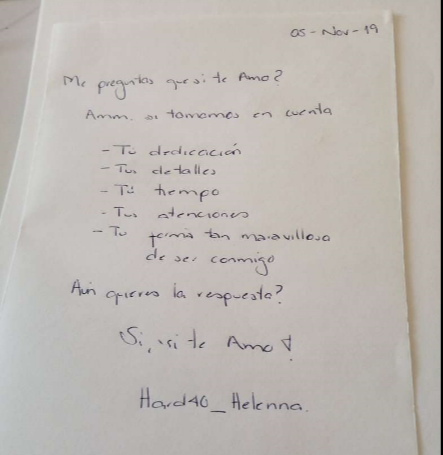 05-Nov-19
Me preguntas que si te Amo?
Amm. si tomamos en cuenta
- Tú dedicación
- Tus detalles
- Tú tiempo
- Tus atenciones
- Tu forma tan maravillosa
de ser conmigo
Aún quieres la respuesta?
Si, si te Amo!
Hard40_Helenna.